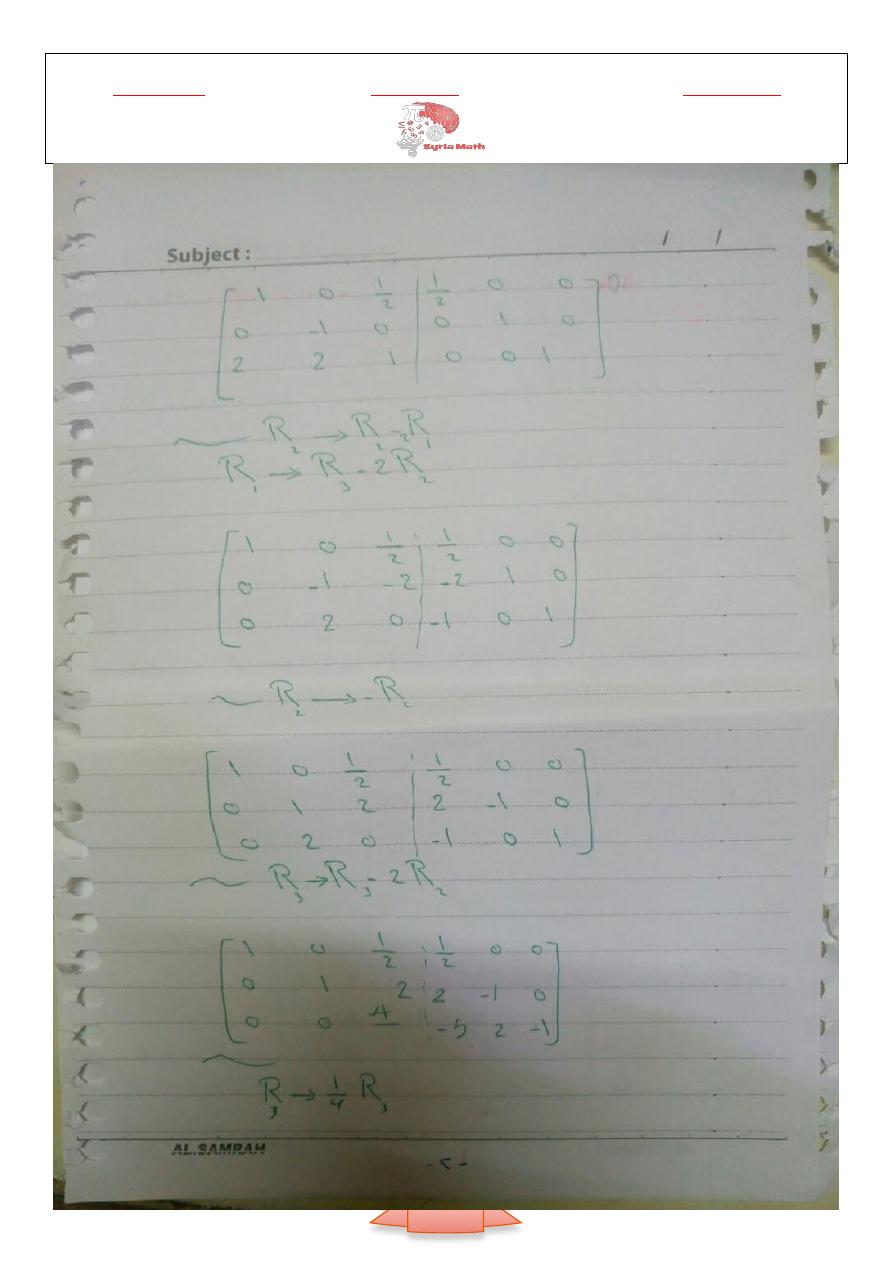 Syria Math
Subject : / /
1 0 1/2 | 1/2 0 0
0 -1 0 | 0 1 0
2 2 1 | 0 0 1
~ R₂ → R₂ - 2R₁
R₁ → R₃ - 2R₂
1 0 1/2 | 1/2 0 0
0 -1 -2 | -2 1 0
0 2 0 | -1 0 1
~ R₂ → -R₂
1 0 1/2 | 1/2 0 0
0 1 2 | 2 -1 0
0 2 0 | -1 0 1
~ R₃ → R₃ - 2R₂
1 0 1/2 | 1/2 0 0
0 1 2 | 2 -1 0
0 0 -4 -5 2 -1
~
R₃ → 1/4 R₃
AL.SAMRAH